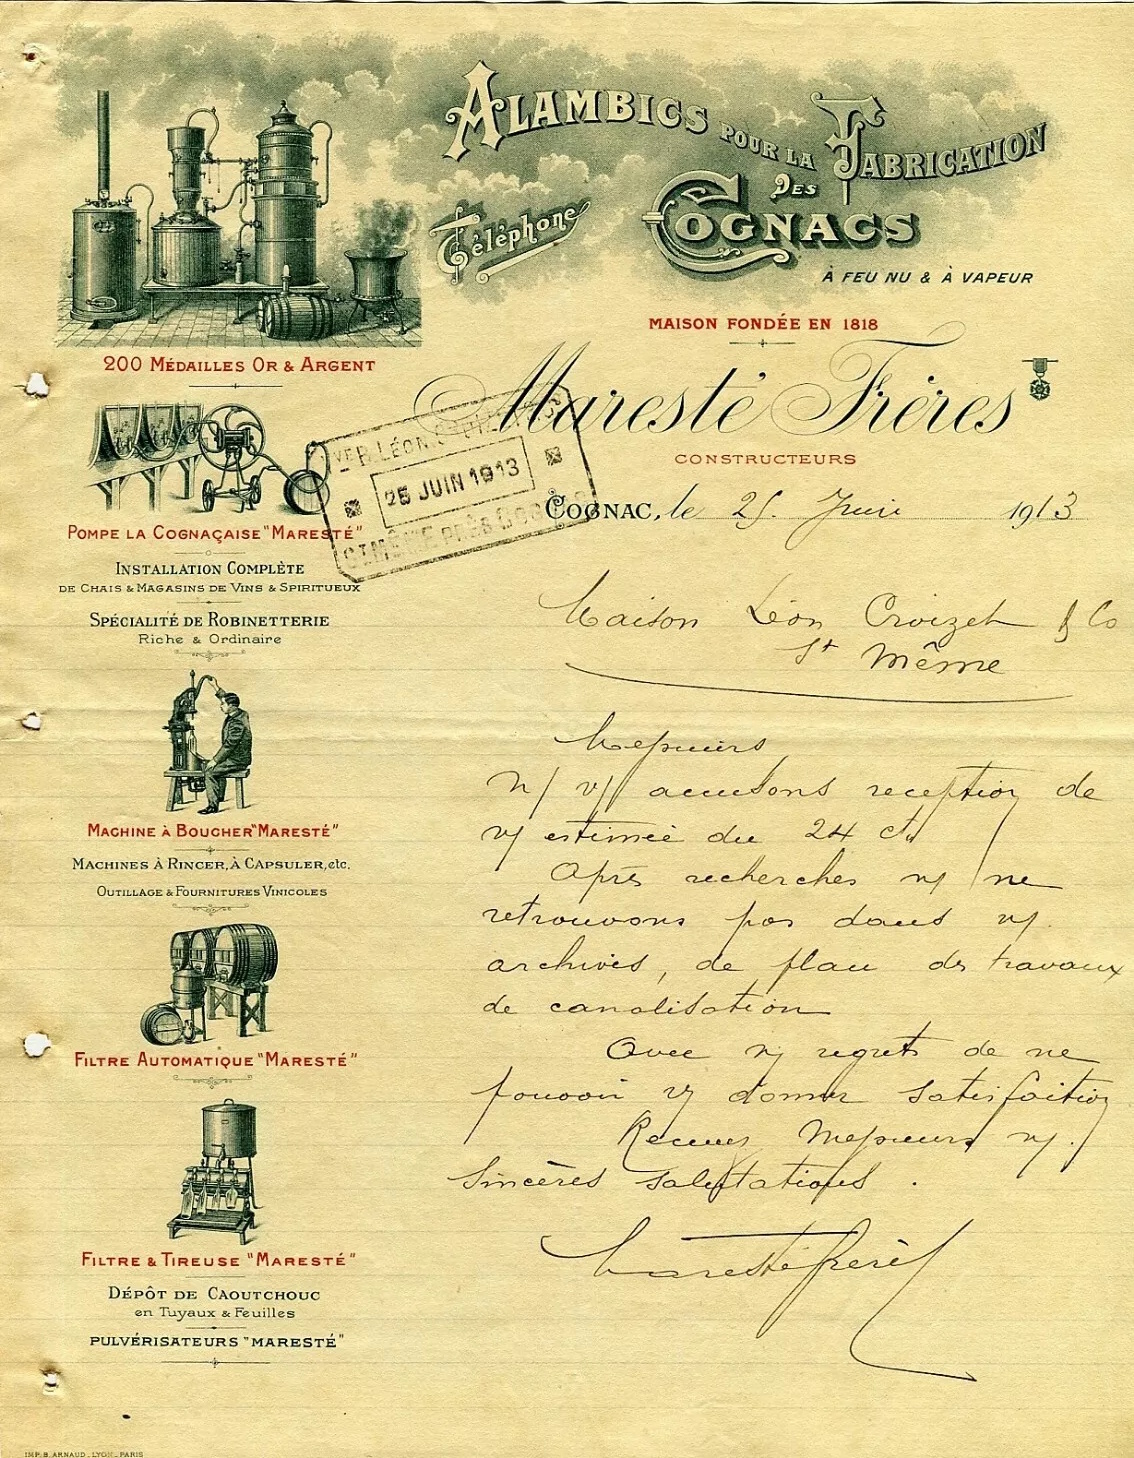 ALAMBICS POUR LA FABRICATION
DES
COGNACS
Téléphone
À FEU NU & À VAPEUR
MAISON FONDÉE EN 1818
200 MÉDAILLES OR & ARGENT
Maresté Frères
CONSTRUCTEURS
25 JUIN 1913
COGNAC, le 25 Juin 1913
POMPE LA COGNAÇAISE "MARESTÉ"
INSTALLATION COMPLÈTE
DE CHAIS & MAGASINS DE VINS & SPIRITUEUX
SPÉCIALITÉ DE ROBINETTERIE
Riche & Ordinaire
MACHINE À BOUCHER "MARESTÉ"
MACHINES À RINCER, À CAPSULER, etc.
OUTILLAGE & FOURNITURES VINICOLES
FILTRE AUTOMATIQUE "MARESTÉ"
FILTRE & TIREUSE "MARESTÉ"
DÉPÔT DE CAOUTCHOUC
en Tuyaux & Feuilles
PULVÉRISATEURS "MARESTÉ"
Maison Léon Croizet & Co
St Même
Messieurs
n/ v/ accusons reception de
v/ estimée du 24 ct.
Après recherches n/ ne
retrouvons pas dans n/
archives, de plan des travaux
de canalisation
Avec n/ regrets de ne
pouvoir v/ donner satisfaction
Recevez Messieurs n/.
sincères salutations.
Maresté frères
IMP. B. ARNAUD. LYON_PARIS